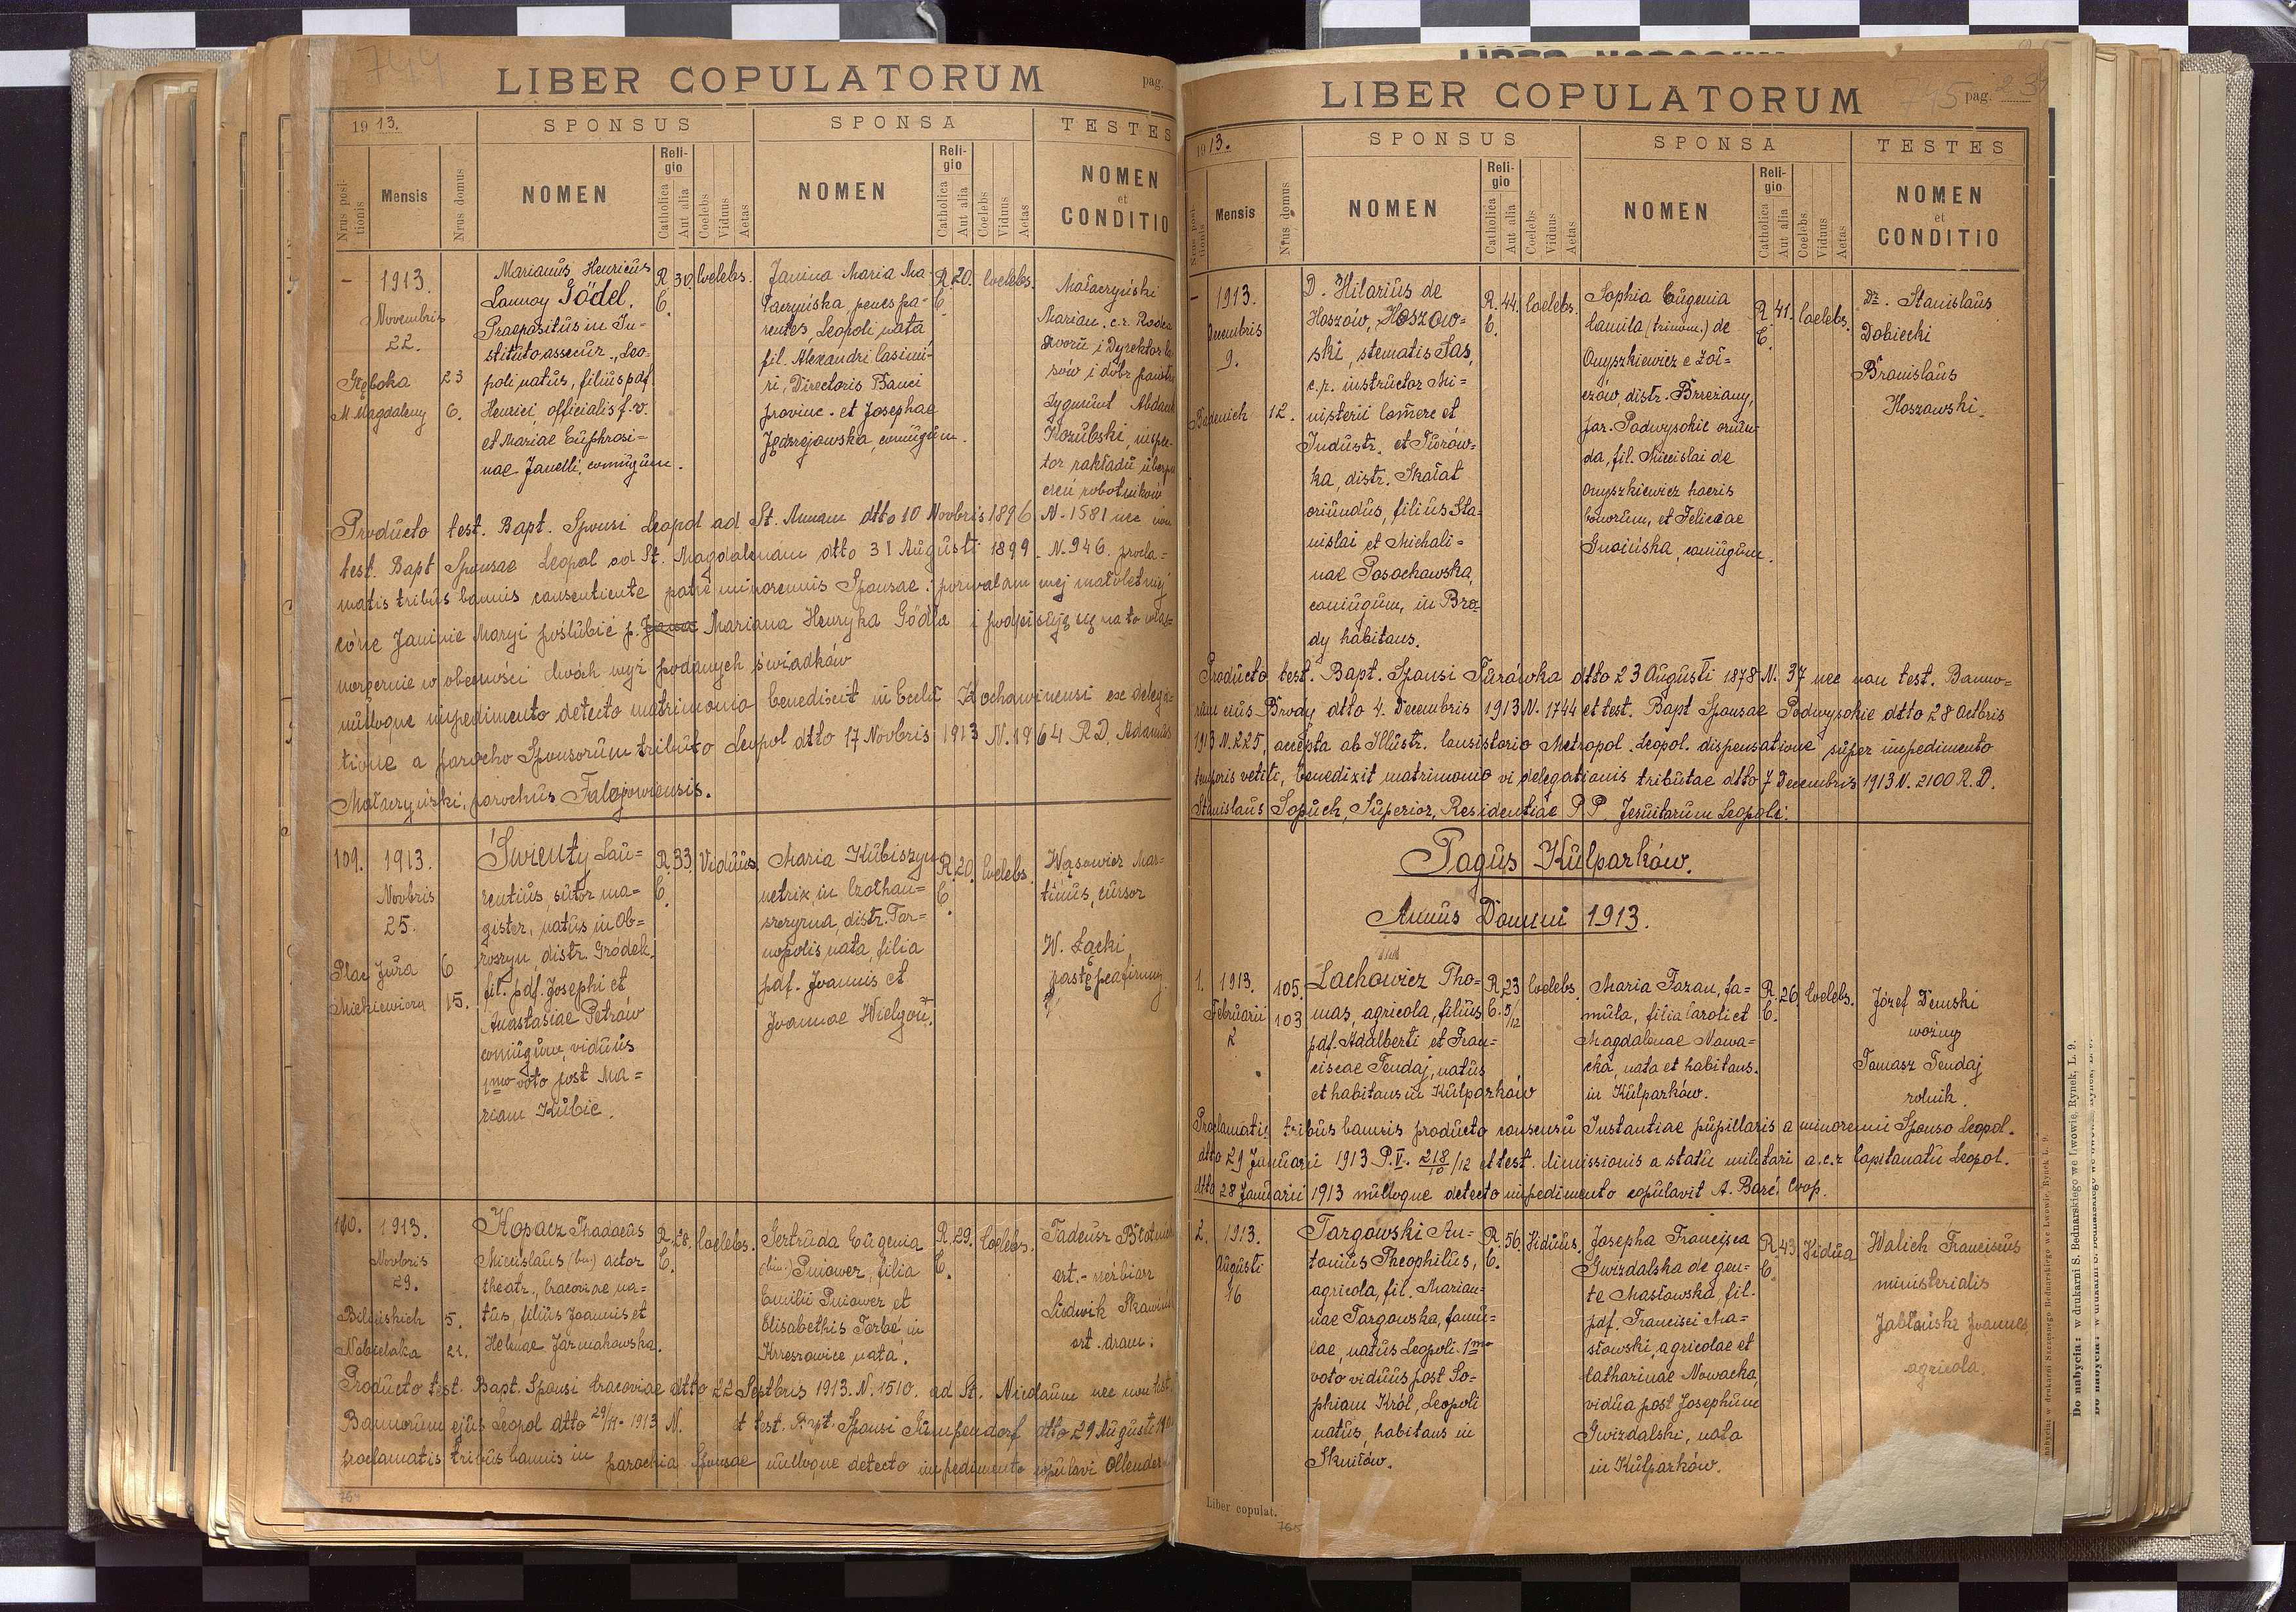 744
LIBER COPULATORUM
pag.
1913.
SPONSUS
SPONSA
TESTES
Nrus positionis
Mensis
Nrus domus
NOMEN
Religio
Catholica
Aut alia
Coelebs
Viduus
Aetas
NOMEN
Religio
Catholica
Aut alia
Coelebs
Viduus
Aetas
NOMEN
et
CONDITIO
- 1913.
Novembris
22.
Głęboka 23
M. Magdaleny 6.
Marianus Henricus
Launoy Gödel.
Praepositus in In-
stituto assecur. Leo-
poli natus, filius pdf
Henrici, officialis f. v.
et Mariae Euphrosi-
nae Janelli, coniugum.
R. C.
30
Coelebs.
Janina Maria Ma-
łaczyńska penes pa-
rentes, Leopoli nata
fil. Alexandri Casimi-
ri, Directoris Banci
provinc. et Josephae
Jędrzejowska, coniugum.
R. C.
20.
Coelebs.
Małaczyński
Marian. c.r. Radca
dworu i Dyrektor la
sów i dóbr państw
Zygmunt Abdank
Kozubski, inspek-
tor zakładu ubezpie
czeń robotników
Producto test. Bapt. Sponsi Leopol ad St. Annam dtto 10 Novbris 1896 N. 1581 nec non
test. Bapt Sponsae Leopol ad St. Magdalenam dtto 31 Augusti 1899. N. 946. procla-
matis tribus bannis consentiente patre minorennis Sponsae: pozwalam mej małoletniej
córce Janinie Maryi poślubić p. Mariana Henryka Gödla i podpisuję się na to włas-
noręcznie w obecności dwóch wyż podanych świadków
nulloque impedimento detecto matrimonio benedixit in Eccla Kochawinensi ex delega-
tione a parocho Sponsorum tributo Leopol dtto 17 Novbris 1913 N. 1964 R. D. Adamus
Małaczyński, parochus
109. 1913.
Novbris
25.
Plac Jura 6
Mickiewicza 15.
Świenty Lau-
rentius, sutor ma-
gister, natus in Ob-
roszyn, distr. Gródek.
fil. pdf. Josephi et
Anastasiae Petrów
coniugum, viduus
1mo voto post Ma-
riam Kubic.
R. C.
33.
Viduus.
Maria Kubiszyn
netrix, in Czołhan-
szczyzna, distr. Tar-
nopolis nata, filia
pdf. Joannis et
Joannae Wielgoń.
R. C.
20.
Coelebs.
Wąsowicz Mar-
tinus, cursor
W. Łącki
110. 1913.
Novbris
29.
Bilińskich 5.
Nabielaka 21.
Kopacz Thadaeus
Miecislaus (bin.) actor
theatr., Cracoviae na-
tus, filius Joannis et
Helenae Jarmakowska.
R. C.
28.
Coelebs.
Gertruda Eugenia
(bin.) Pniower, filia
Emilii Pniower et
Elisabethis Torbé in
Krzeszowice nata.
R. C.
29.
Coelebs.
Tadeusz
art.-rzeźbiarz
Ludwik
art. dram.
Producto test. Bapt. Sponsi Cracoviae dtto 22 Septbris 1913. N. 1510. ad St. Nicolaum nec non test.
Bannorum ejus Leopol dtto 29/11 - 1913 N. et test. Bapt. Sponsi Gumpendorf dtto 29 Augusti
proclamatis tribus bannis in parochia Sponsae nulloque detecto impedimento copulavi
764
LIBER COPULATORUM
745
pag.
1913.
SPONSUS
SPONSA
TESTES
Nrus positionis
Mensis
Nrus domus
NOMEN
Religio
Catholica
Aut alia
Coelebs
Viduus
Aetas
NOMEN
Religio
Catholica
Aut alia
Coelebs
Viduus
Aetas
NOMEN
et
CONDITIO
- 1913.
Decembris
9.
12.
D. Hilarius de
Hoszów, Hoszow-
ski, stematis Sas,
c.r. instructor Mi-
nisterii Comerc et
Industr. et Turów-
ka, distr. Skałat
oriundus, filius Sta-
nislai et Michali-
nae Posochowska,
coniugum, in Bro-
dy habitans.
R. C.
44.
Coelebs.
Sophia Eugenia
Camila (trinom.) de
Onyszkiewicz e
distr. Brzeżany,
par. Podwysokie oriun-
da, fil. Miecislai de
Onyszkiewicz haeris
bonorum, et Feliciae
Gnoińska, coniugum.
R. C.
41.
Coelebs.
Dr. Stanislaus
Dobiecki
Bronislaus
Hoszowski.
Producto test. Bapt. Sponsi Turówka dtto 23 Augusti 1878 N. 37 nec non test. Banno-
rum eius Brody dtto 4. Decembris 1913 N. 1744 et test. Bapt Sponsae Podwysokie dtto 28 Octbris
1913 N. 225, accepta ab Illustr. Consistorio Metropol. Leopol. dispensatione super impedimento
temporis vetiti, benedixit matrimonio vi delegationis tributae dtto 7 Decembris 1913 N. 2100 R. D.
Stanislaus Sopuch, Superior, Residentiae P.P. Jesuitarum Leopoli.
Pagus Kulparków.
Annus Domini 1913.
1. 1913.
Februarii
2
105.
103
Lachowicz Tho-
mas, agricola, filius
pdf. Adalberti et Fran-
ciscae Tendaj, natus
et habitans in Kulparków
R. C.
23 5/12
Coelebs.
Maria Tazan, fa-
mula, filia Caroli et
Magdalenae Nowa-
cka, nata et habitans.
in Kulparków.
R. C.
26.
Coelebs.
Józef Demski
woźny
Tomasz Tendaj
rolnik.
Proclamatis tribus bannis producto consensu Instantiae pupillaris a minorenni Sponso Leopol.
dtto 29 Januarii 1913 P. V. 218/10 /12 et test. dimissionis a statu militari a c.r Capitanatu Leopol.
dtto 28 Januarii 1913 nulloque detecto impedimento copulavit A. Barć, Coop.
2. 1913.
Augusti
16
Targowski An-
tonius Theophilus,
agricola, fil. Marian-
nae Targowska, famu-
lae, natus Leopoli. 1mo
voto viduus post So-
phiam Król, Leopoli
natus, habitans in
Sknitów.
R. C.
56.
Viduus.
Josepha Francisca
Gwizdalska de gen-
te Masłowska, fil.
pdf. Francisci Ma-
słowski, agricolae et
Catharinae Nowacka,
vidua post Josephum
Gwizdalski, nata
in Kulparków.
R. C.
43.
Vidua
Walich Franciscus
ministerialis
Jabłoński Joannes,
agricola.
Liber copulat.
765
Do nabycia: w drukarni S. Bednarskiego we Lwowie, Rynek, L. 9.